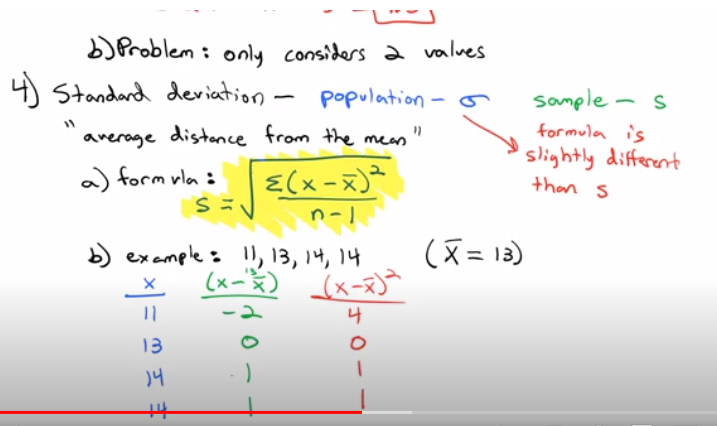 b) Problem: only considers 2 values
4) Standard deviation — population - σ sample — s
"average distance from the mean" formula is
slightly different
than s
a) formula: s = √(Σ(x - x̄)² / (n-1))
b) example: 11, 13, 14, 14 (x̄ = 13)
x (x - x̄) 13 (x - x̄)²
11 -2 4
13 0 0
14 1 1
14 1 1